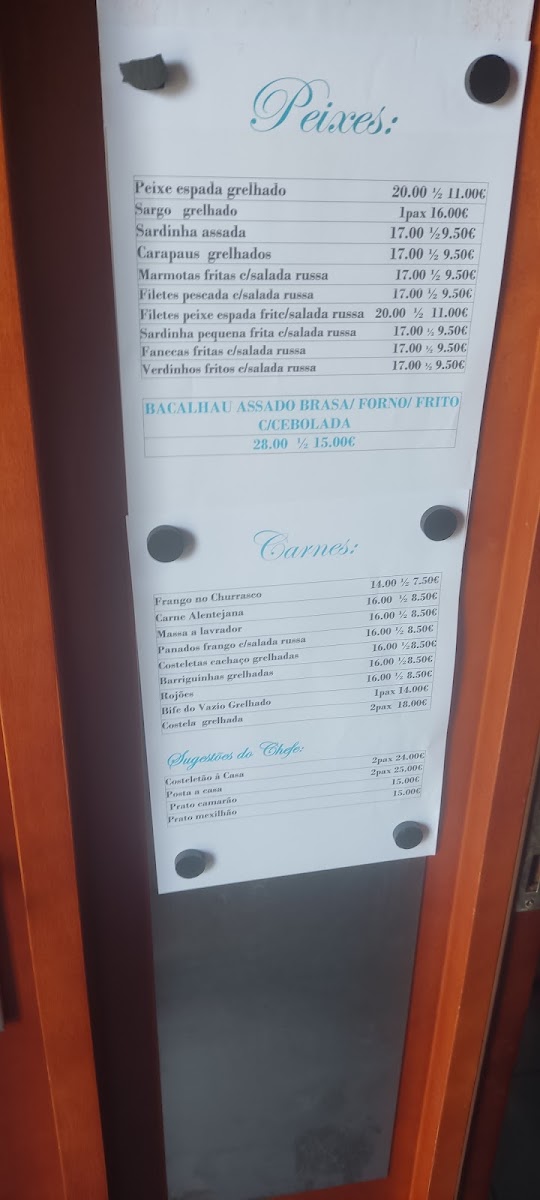 Peixes:
Peixe espada grelhado 20.00 ½ 11.00€
Sargo grelhado 1pax 16.00€
Sardinha assada 17.00 ½9.50€
Carapaus grelhados 17.00 ½ 9.50€
Marmotas fritas c/salada russa 17.00 ½ 9.50€
Filetes pescada c/salada russa 17.00 ½ 9.50€
Filetes peixe espada fritc/salada russa 20.00 ½ 11.00€
Sardinha pequena frita c/salada russa 17.00 ½ 9.50€
Fanecas fritas c/salada russa 17.00 ½ 9.50€
Verdinhos fritos c/salada russa 17.00 ½ 9.50€
BACALHAU ASSADO BRASA/ FORNO/ FRITO
C/CEBOLADA
28.00 ½ 15.00€
Carnes:
Frango no Churrasco 14.00 ½ 7.50€
Carne Alentejana 16.00 ½ 8.50€
Massa a lavrador 16.00 ½ 8.50€
Panados frango c/salada russa 16.00 ½ 8.50€
Costeletas cachaço grelhadas 16.00 ½8.50€
Barriguinhas grelhadas 16.00 ½8.50€
Rojões 16.00 ½ 8.50€
Bife do Vazio Grelhado 1pax 14.00€
Costela grelhada 2pax 18.00€
Sugestões do Chefe:
Costeletão à Casa 2pax 24.00€
Posta a casa 2pax 25,00€
Prato camarão 15.00€
Prato mexilhão 15.00€